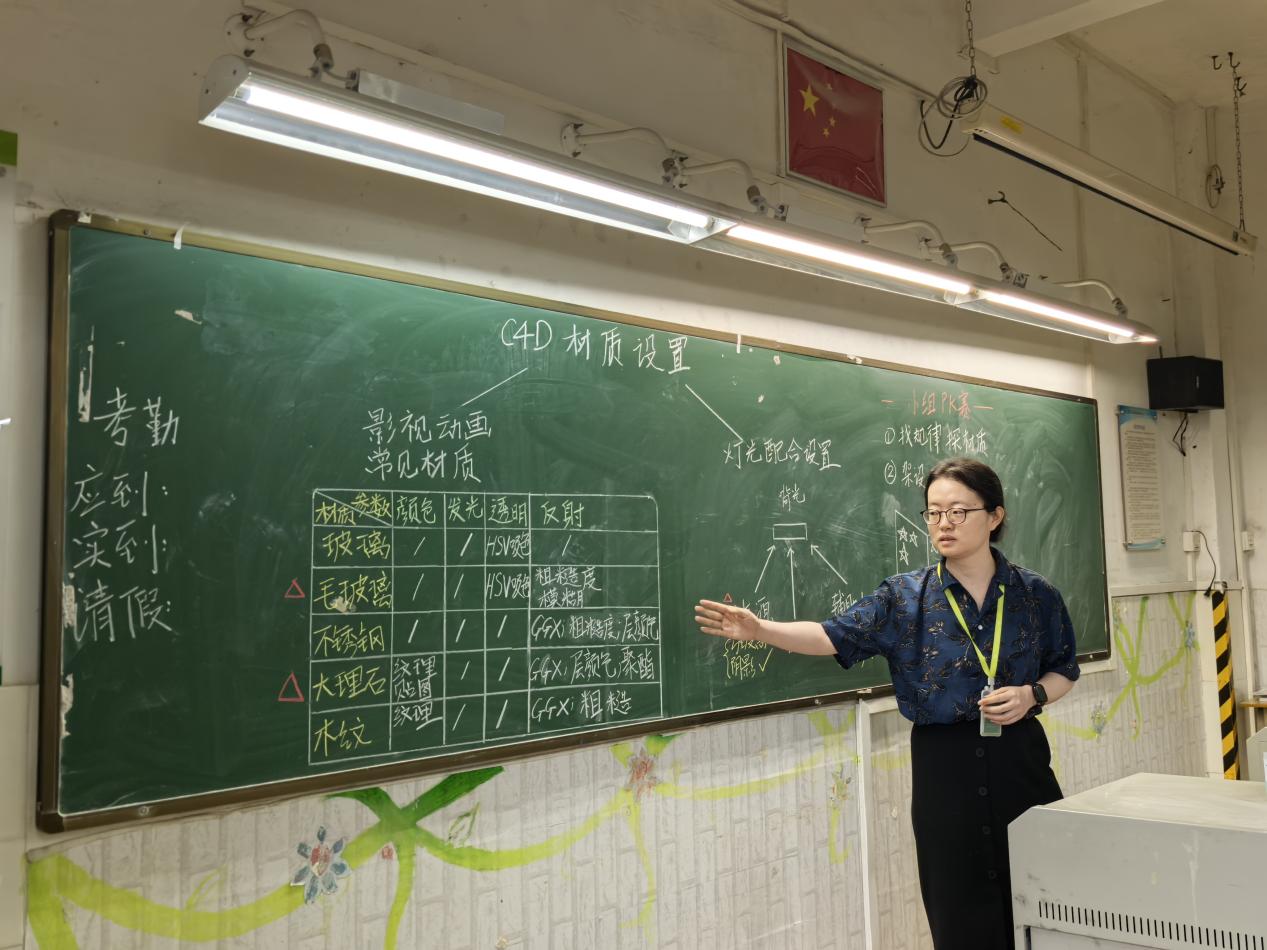 C4D 材质设置
考勤
应到:
实到:
请假:
影视动画
常见材质
材质 参数 颜色 发光 透明 反射
玻璃 / / HSV颜色 /
毛玻璃 / / HSV颜色 粗糙度 模糊
不锈钢 / / / GGX; 粗糙度; 层颜色
大理石 纹理 贴图 / / GGX; 层颜色; 聚酯
木纹 纹理 / / GGX; 粗糙
灯光配合设置
背光
阴影 ✓
— 小组PK赛 —
① 找规律 探材质
② 架设